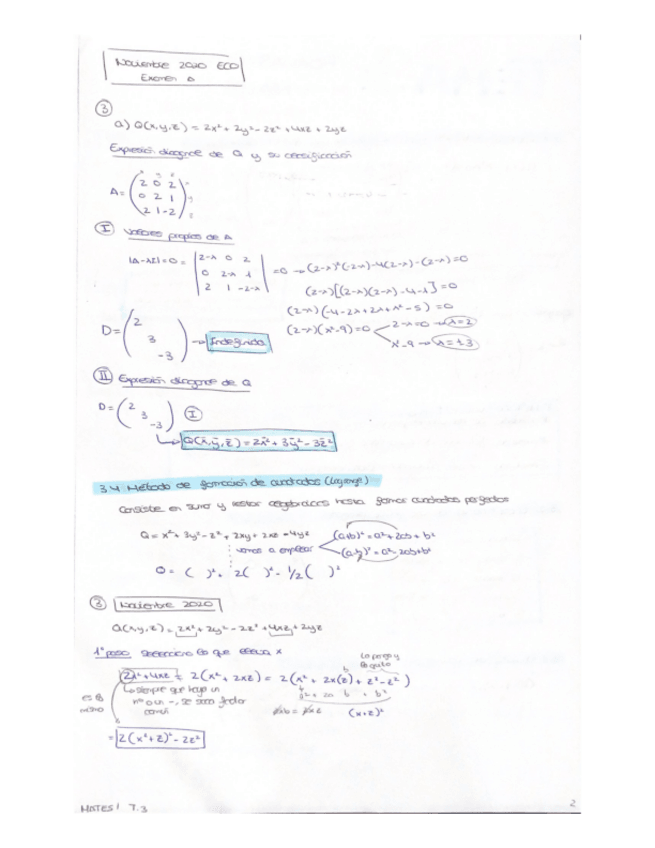 Noviembre 2020 ECO
Examen
3
a) Q(x,y,z) = 2x² + 2y² - 2z² + 4xz + 2yz
Expresión diagonal de Q y su clasificación
A = (2 0 2
0 2 1
2 1 -2)
I Valores propios de A
|A-λI| = 0 = |2-λ 0 2
0 2-λ 1
2 1 -2-λ| = 0 → (2-λ)²(-2-λ)-4(2-λ)-(2-λ)=0
(2-λ)(-4-2λ+2λ+λ²-5) = 0
(2-λ)(λ²-9)=0
2-λ=0 → λ=2
D = (2
3
-3) → Indefinida
II Expresión diagonal de Q
D = (2
3
-3) I
3.4 Método de formación de cuadrados (Lagrange)
Consiste en sumar y restar hasta formar cuadrados perfectos
Q = x² + 3y² - z² + 2xy + 2xz - 4yz
(a+b)² = a² + 2ab + b²
vamos a emplear
(a-b)² = a² - 2ab + b²
Q = ( )² + 2( )² - 1/2( )²
3 Noviembre 2020
Q(x,y,z) = 2x² + 2y² - 2z² + 4xz + 2yz
1º paso: lo que lleva x
lo pongo y
lo quito
2x²+4xz = 2(x² + 2xz) = 2(x² + 2x(z) + z² - z²)
es lo
mismo
siempre que haya un
nº o un -, se saca factor
común
a² + 2a b + b²
(x+z)²
= 2(x²+z)² - 2z²
MATES I T.3
2